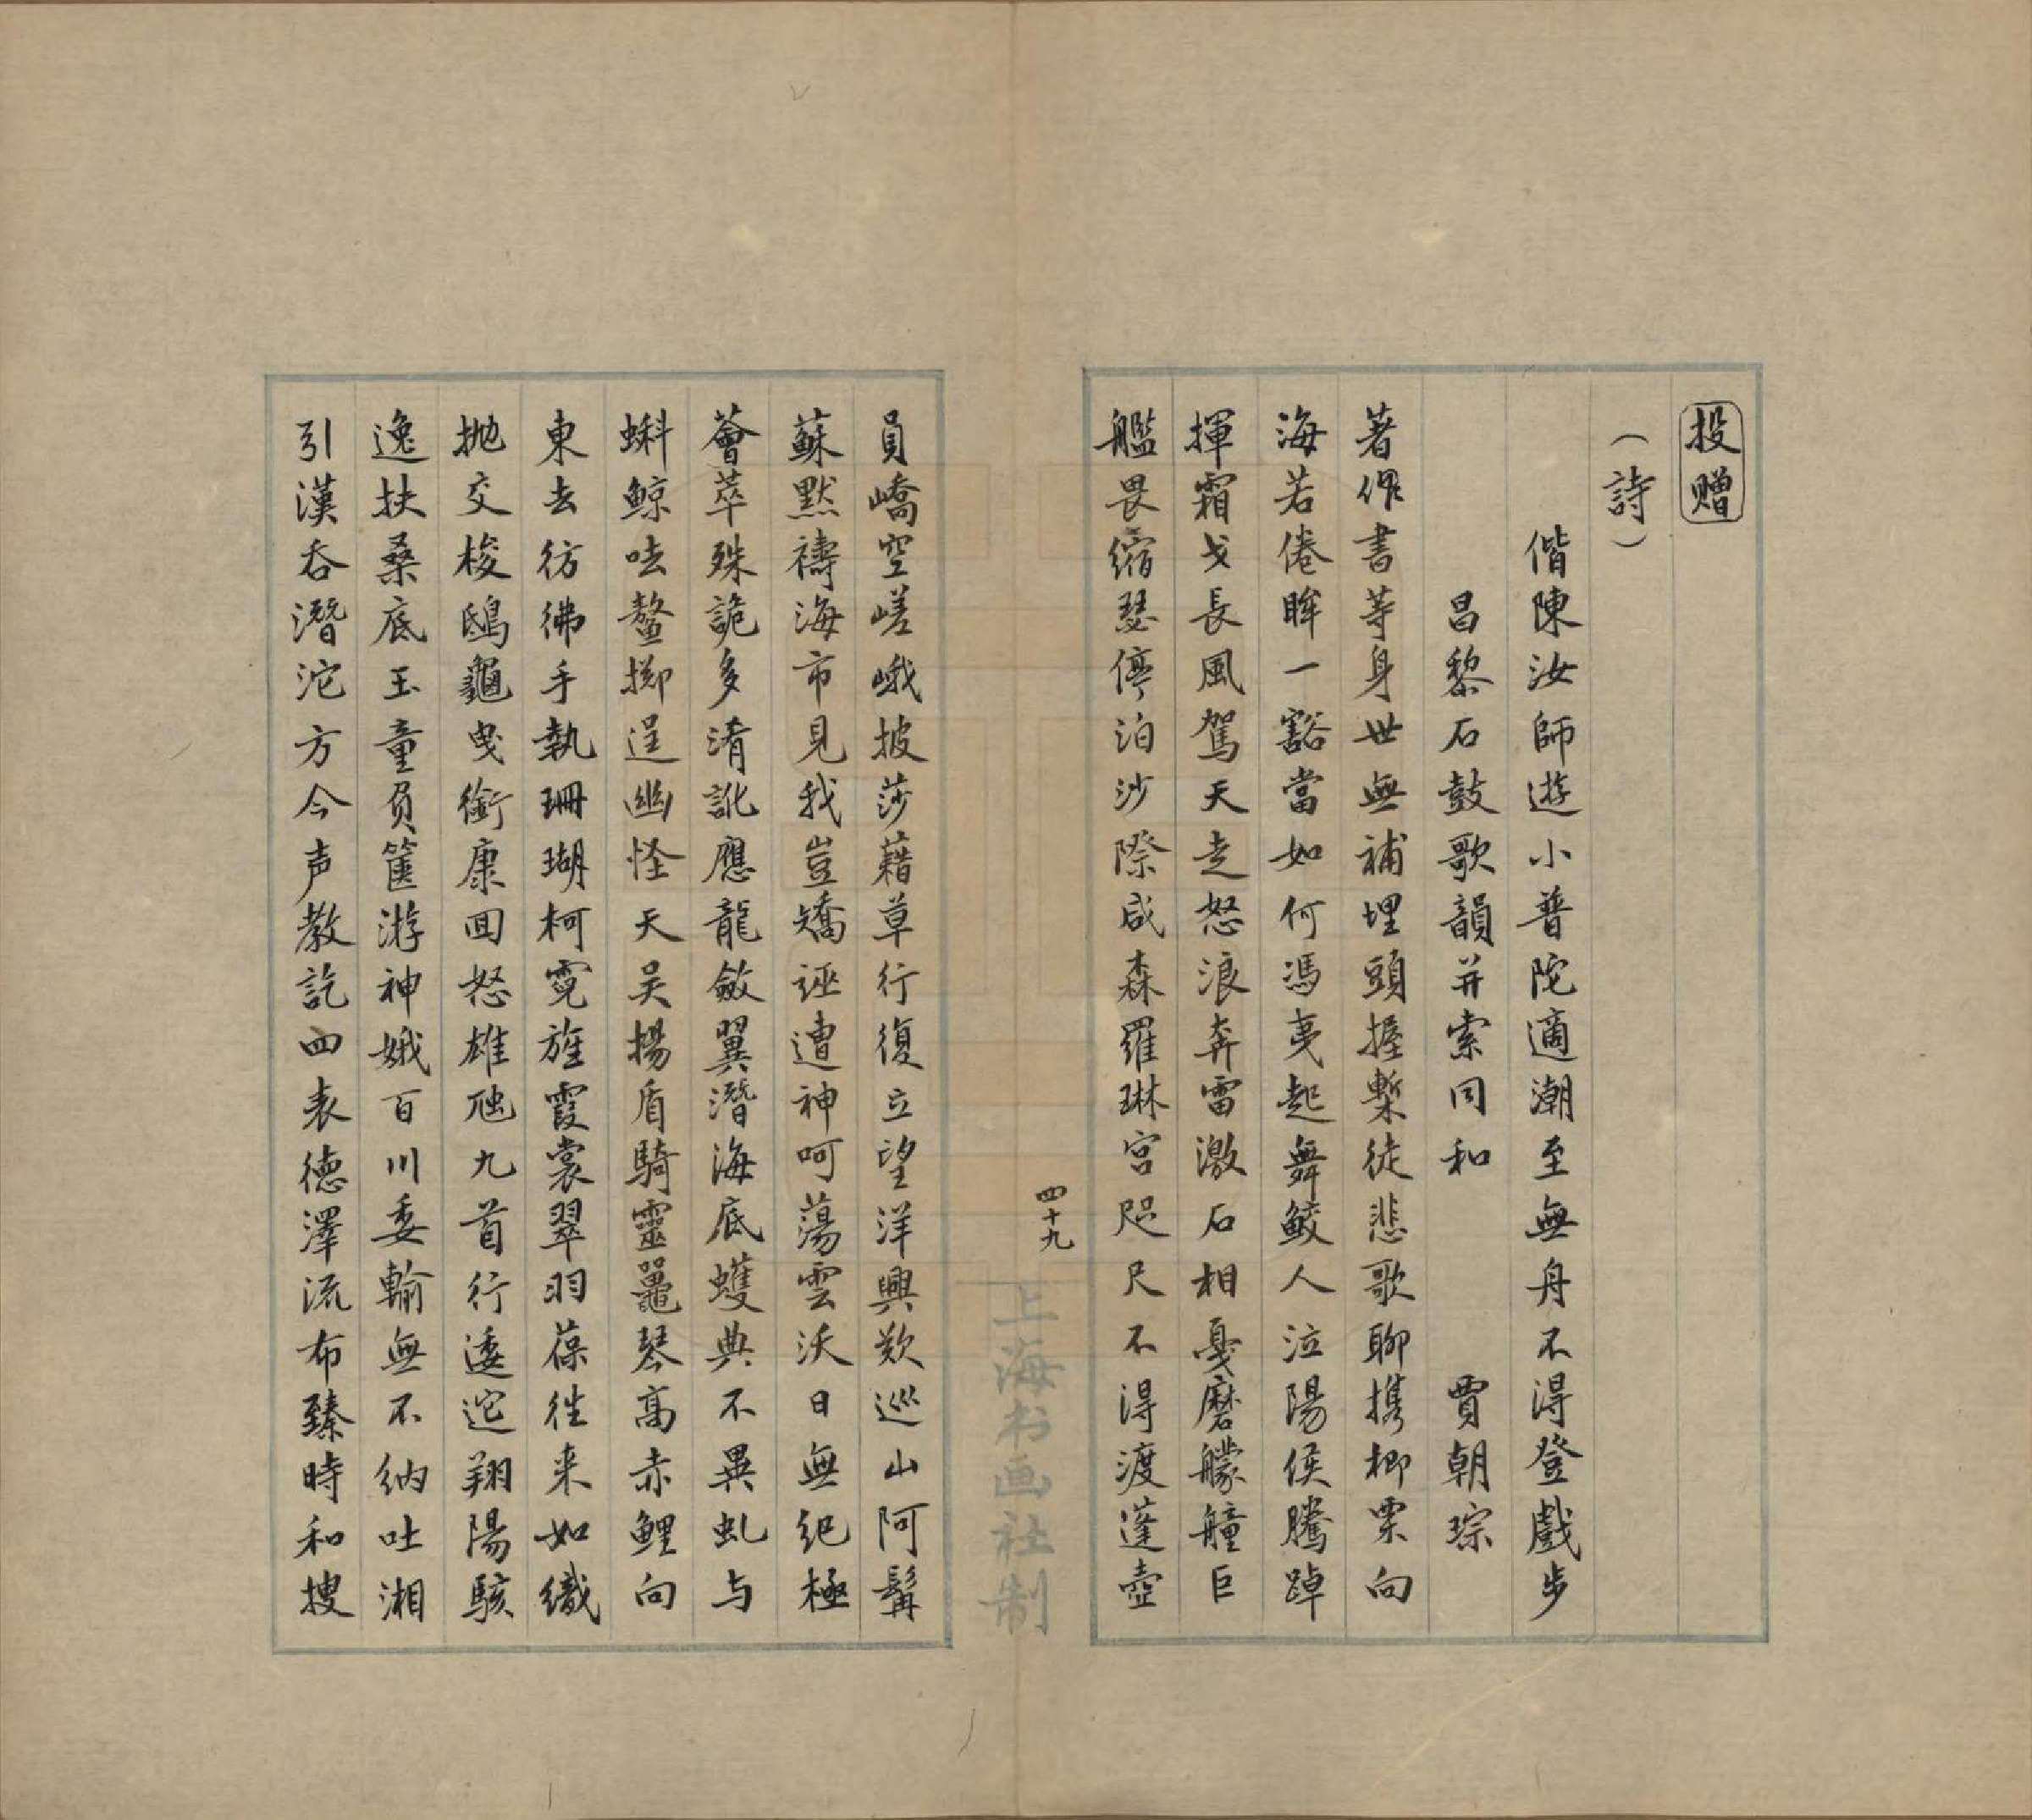 投赠
（詩）
偕陳汝師遊小普陀適潮至無舟不得登戲步
昌黎石鼓歌韻并索同和　賈朝琮
著作書等身世無補埋頭握槧徒悲歌聊携柳栗向
海若倦眸一豁當如何馮夷起舞鮫人泣陽侯騰踔
揮霜戈長風駕天走怒浪奔雷激石相戛磨艨艟巨
艦畏縮瑟停泊沙際咸森羅琳宮咫尺不得渡蓬壺
員嶠空嵯峨披莎藉草行復立望洋興歎巡山阿髯
蘇默禱海市見我豈矯誣遭神呵蕩雲沃日無紀極
薈萃殊詭多淆訛應龍斂翼潛海底蠖典不異虬与
蝌鯨呿鼇擲逞幽怪天吴揚盾騎靈鼉琴高赤鯉向
東去彷彿手執珊瑚柯霓旌霞裳翠羽葆往来如織
拋交梭鴟龜曳銜康回怒雄虺九首行逶迤翔陽駭
逸扶桑底玉童負篋游神娥百川委輸無不納吐湘
引漢吞潛沱方今声教訖四表德澤流布臻時和搜
四十九
上海书画社制